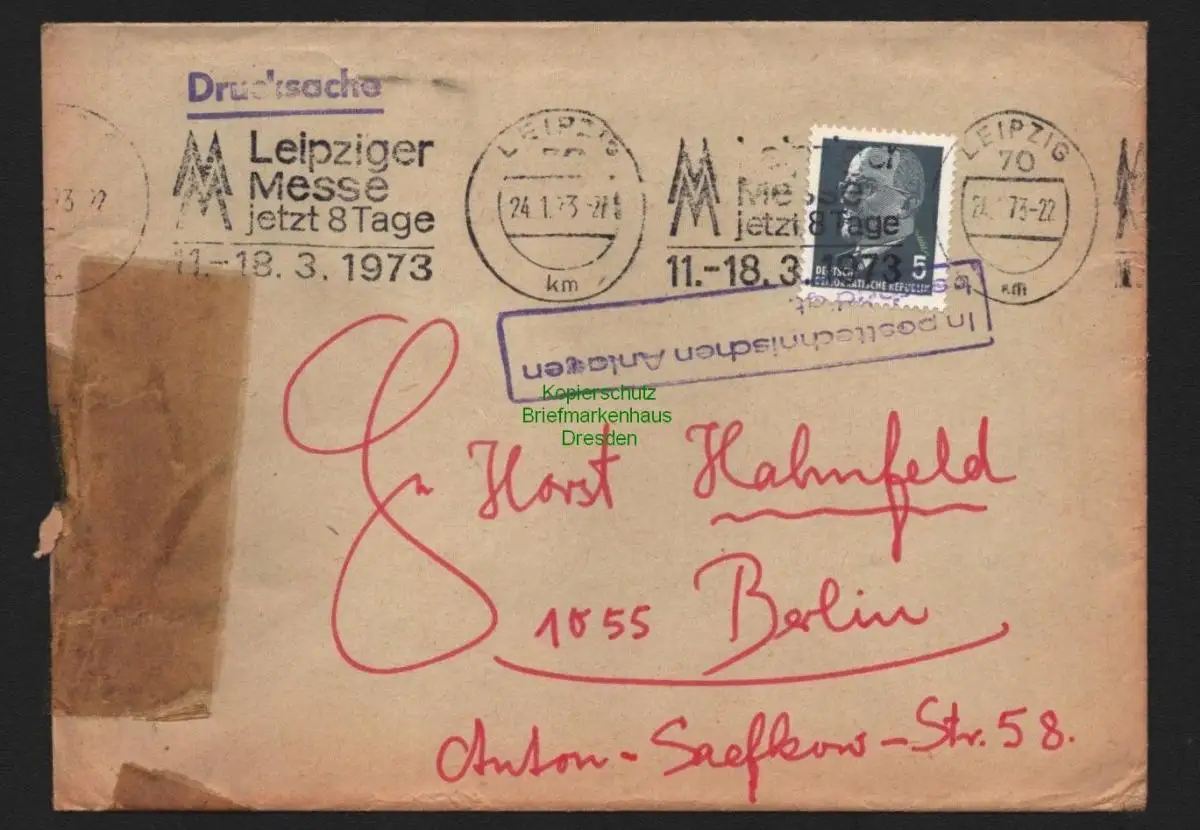 Drucksache
Leipziger
Messe
jetzt 8 Tage
11.-18. 3. 1973
LEIPZIG
24.1.73-22
km
Messe
jetzt 8 Tage
11.-18. 3. 1973
LEIPZIG
70
73-22
km
5
DEMOKRATISCHE REPUBLIK
In posttechnischen Anlagen
Kopierschutz
Briefmarkenhaus
Dresden
Horst Hahnfeld
1055 Berlin
Anton-Saefkow-Str. 58.